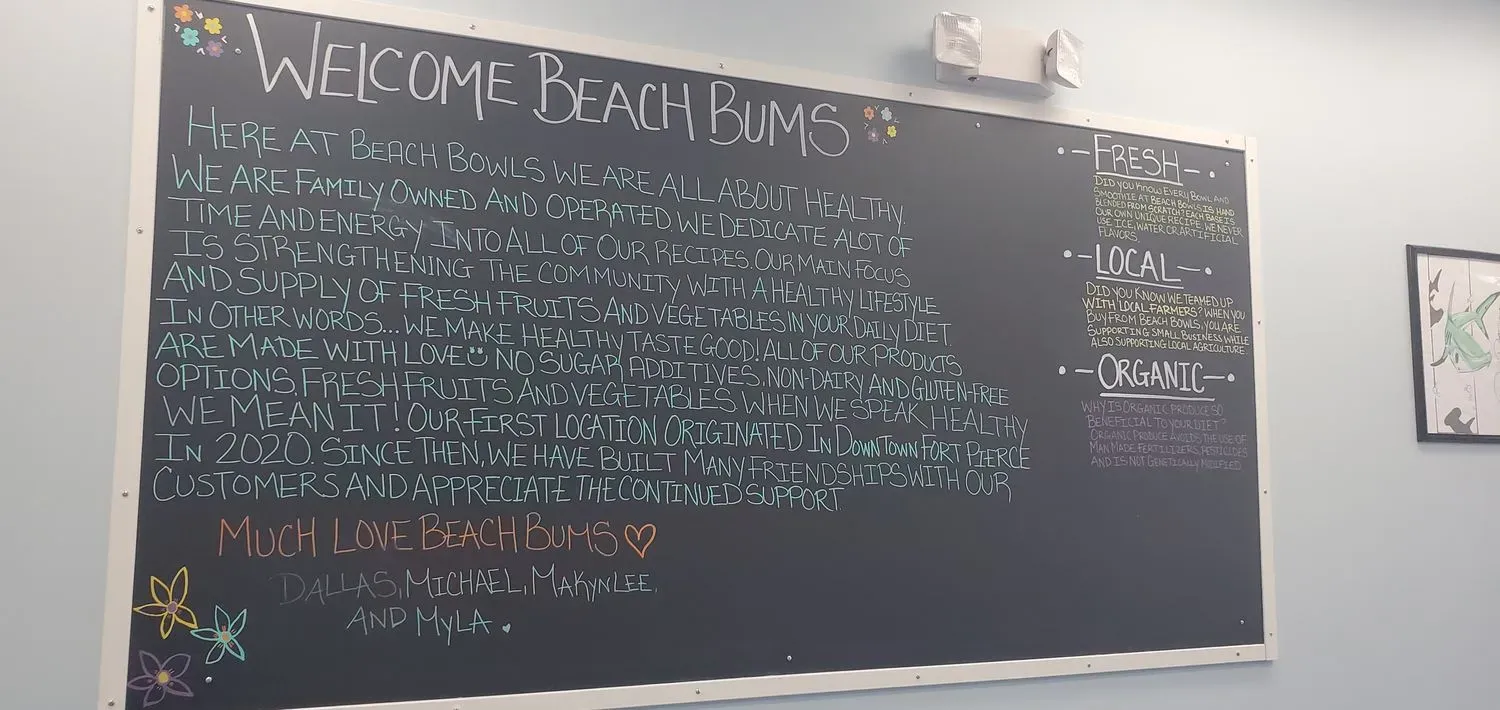 WELCOME BEACH BUMS
HERE AT BEACH BOWLS WE ARE ALL ABOUT HEALTHY.
WE ARE FAMILY OWNED AND OPERATED. WE DEDICATE ALOT OF
TIME AND ENERGY INTO ALL OF OUR RECIPES. OUR MAIN FOCUS
IS STRENGTHENING THE COMMUNITY WITH A HEALTHY LIFESTYLE
AND SUPPLY OF FRESH FRUITS AND VEGETABLES IN YOUR DAILY DIET.
IN OTHER WORDS... WE MAKE HEALTHY TASTE GOOD! ALL OF OUR PRODUCTS
ARE MADE WITH LOVE NO SUGAR ADDITIVES. NON-DAIRY AND GLUTEN-FREE
OPTIONS. FRESH FRUITS AND VEGETABLES. WHEN WE SPEAK HEALTHY
WE MEAN IT! OUR FIRST LOCATION ORIGINATED IN DOWNTOWN FORT PIERCE
IN 2020. SINCE THEN, WE HAVE BUILT MANY FRIENDSHIPS WITH OUR
CUSTOMERS AND APPRECIATE THE CONTINUED SUPPORT.
MUCH LOVE BEACH BUMS ♡
DALLAS, MICHAEL, MAKYNLEE,
AND MYLA ♥
• - FRESH - •
DID YOU KNOW EVERY BOWL AND
SMOOTHIE AT BEACH BOWLS IS HAND
BLENDED FROM SCRATCH? EACH BASE IS
OUR OWN UNIQUE RECIPE. WE NEVER
USE ICE, WATER OR ARTIFICIAL
FLAVORS.
• - LOCAL - •
DID YOU KNOW WE TEAMED UP
WITH LOCAL FARMERS? WHEN YOU
BUY FROM BEACH BOWLS, YOU ARE
SUPPORTING SMALL BUSINESS WHILE
ALSO SUPPORTING LOCAL AGRICULTURE.
• - ORGANIC - •
WHY IS ORGANIC PRODUCE SO
BENEFICIAL TO YOUR DIET?
ORGANIC PRODUCE AVOIDS THE USE OF
MAN MADE FERTILIZERS, PESTICIDES
AND IS NOT GENETICALLY MODIFIED